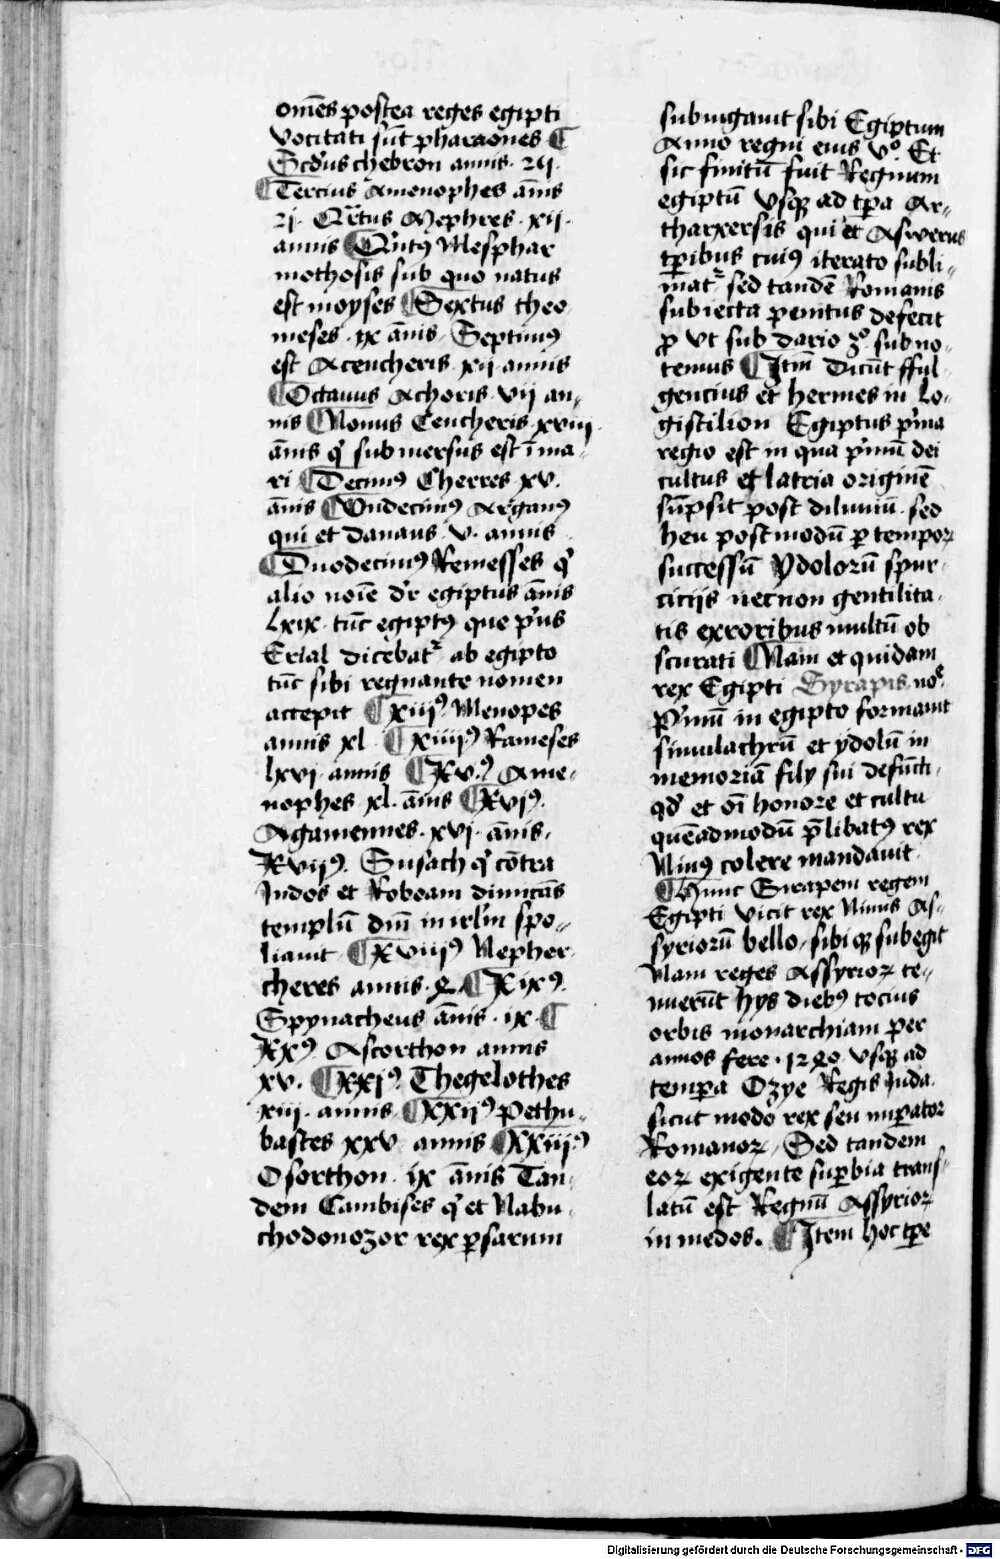 om̄es postea reges egipti
vocitati su̅t pharaones ¶
Scd̕us chebron annis · 21 ·
¶ Tercius Amenophes an̅is
21 · Qr̕tus Mephres · xij ·
annis ¶ Qui̅tꝰ Mesphar
mothosis sub quo natus
est moyses ¶ Sextus theo
meses · ix an̅is · Septimꝰ
est Acencheris xij annis
¶ Octauus Achoris · vij an-
nis ¶ Nonus Cencheris xviij
an̅is q̕ submersus est i̅ ma-
ri ¶ Decimꝰ Cherres xv ·
an̅is ¶ Vndecimꝰ Arganꝰ
qui et danaus · v · annis
¶ Duodecimꝰ Remesses q̕
alio noi̅e dr̕ egiptus an̅is
lxix · tu̅c egiptꝰ que p̕us
Erial dicebatr̕ ab egipto
tu̅c sibi regnante nomen
accepit ¶ xiijꝰ Menopes
annis xl ¶ xiiijꝰ Rameses
lxvj · annis ¶ xv · ꝰ Ame-
nophes · xl · an̅is ¶ xvjꝰ ·
Agamennes · xvj · an̅is ·
xvijꝰ · Susach q̕ co̅tra
Judos et Roboam dimica̅s
templu̅ dn̅i in irl̕m spo-
liauit ¶ xviijꝰ Nepher-
cheres annis · 4 ¶ xixꝰ ·
Spynacheus an̅is · ix · ¶
xxꝰ · Ascorthon annis
xv · ¶ xxjꝰ · Thegelothes
xiij · annis ¶ xxijꝰ Pethu-
bastes xxv · annis ¶ xxiijꝰ
Osorthon · ix an̅is Tan-
dem Cambises q̕ et Nabu-
chodonozor rex ꝑsarum
subiugauit sibi Egiptum
Anno regni eius v° · Et
sic finitu̅ fuit Regnum
egiptu̅ vsqꝫ ad tꝑa Ar-
tharxersis qui et Aswerus
tꝑibus cuiꝰ iterato subli-
matr̕ sed tande̅ Romanis
subiecta penitus defecit
ꝓ vt sub dario 3° · subno-
temus ¶ Itm̅ dicu̅t fful-
gencius et hermes in Lo-
gistilion Egiptus p̕ma
regio est in qua p̕mu̅ dei
cultus et latria origine̅
su̅psit post diluuiu̅ · sed
heu postmodu̅ ꝑ tempoꝝ
successu̅ ydoloru̅ spur-
ciciis necnon gentilita-
tis erroribus multu̅ ob
scurati ¶ Nam et quidam
rex Egipti Syrapis no̅e
p̕mu̅ in egipto formauit
simulachru̅ et ydolu̅ in
memoria̅ filij sui defu̅cti ·
qd̕ et oi̅ honore et cultu
que̅admodu̅ p̅libatꝰ rex
Ninꝰ colere mandauit ·
¶ Hunc Sirapem regem
Egipti vicit rex Ninus As-
syrioru̅ bello · sibi qꝫ subegit
Nam reges Assyrioꝝ te-
nueru̅t hys diebꝰ tocius
orbis monarchiam per
annos fere · 1240 · vsqꝫ ad
tempꝑa Ozye Regis Juda ·
sicut modo rex seu imꝑator
Romanoꝝ · Sed tandem
eoꝝ exigente suꝑbia trans-
latu̅ est Regnu̅ Assyrioꝝ
in medos · ¶ Item hoc tꝑe
Digitalisierung gefördert durch die Deutsche Forschungsgemeinschaft - DFG